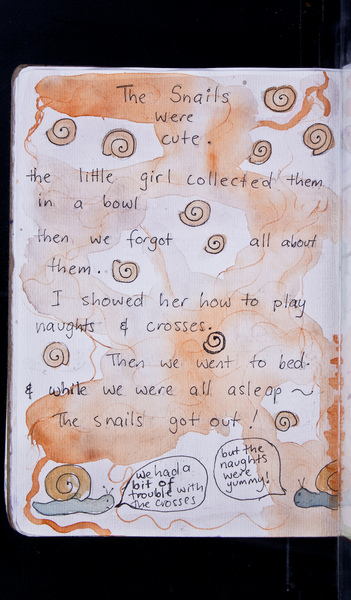 The Snails
were
cute.
the little girl collected them
in a bowl
then we forgot all about
them.
I showed her how to play
naughts & crosses.
Then we went to bed.
& while we were all asleep ~
The snails got out!
we had a
bit of
trouble with
the crosses
but the
naughts
were
yummy!